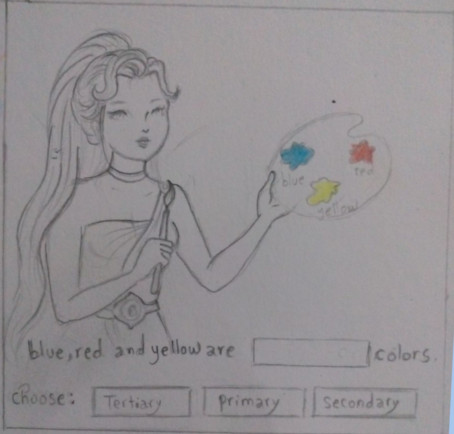 blue
red
yellow
blue, red and yellow are colors.
choose: Tertiary primary Secondary